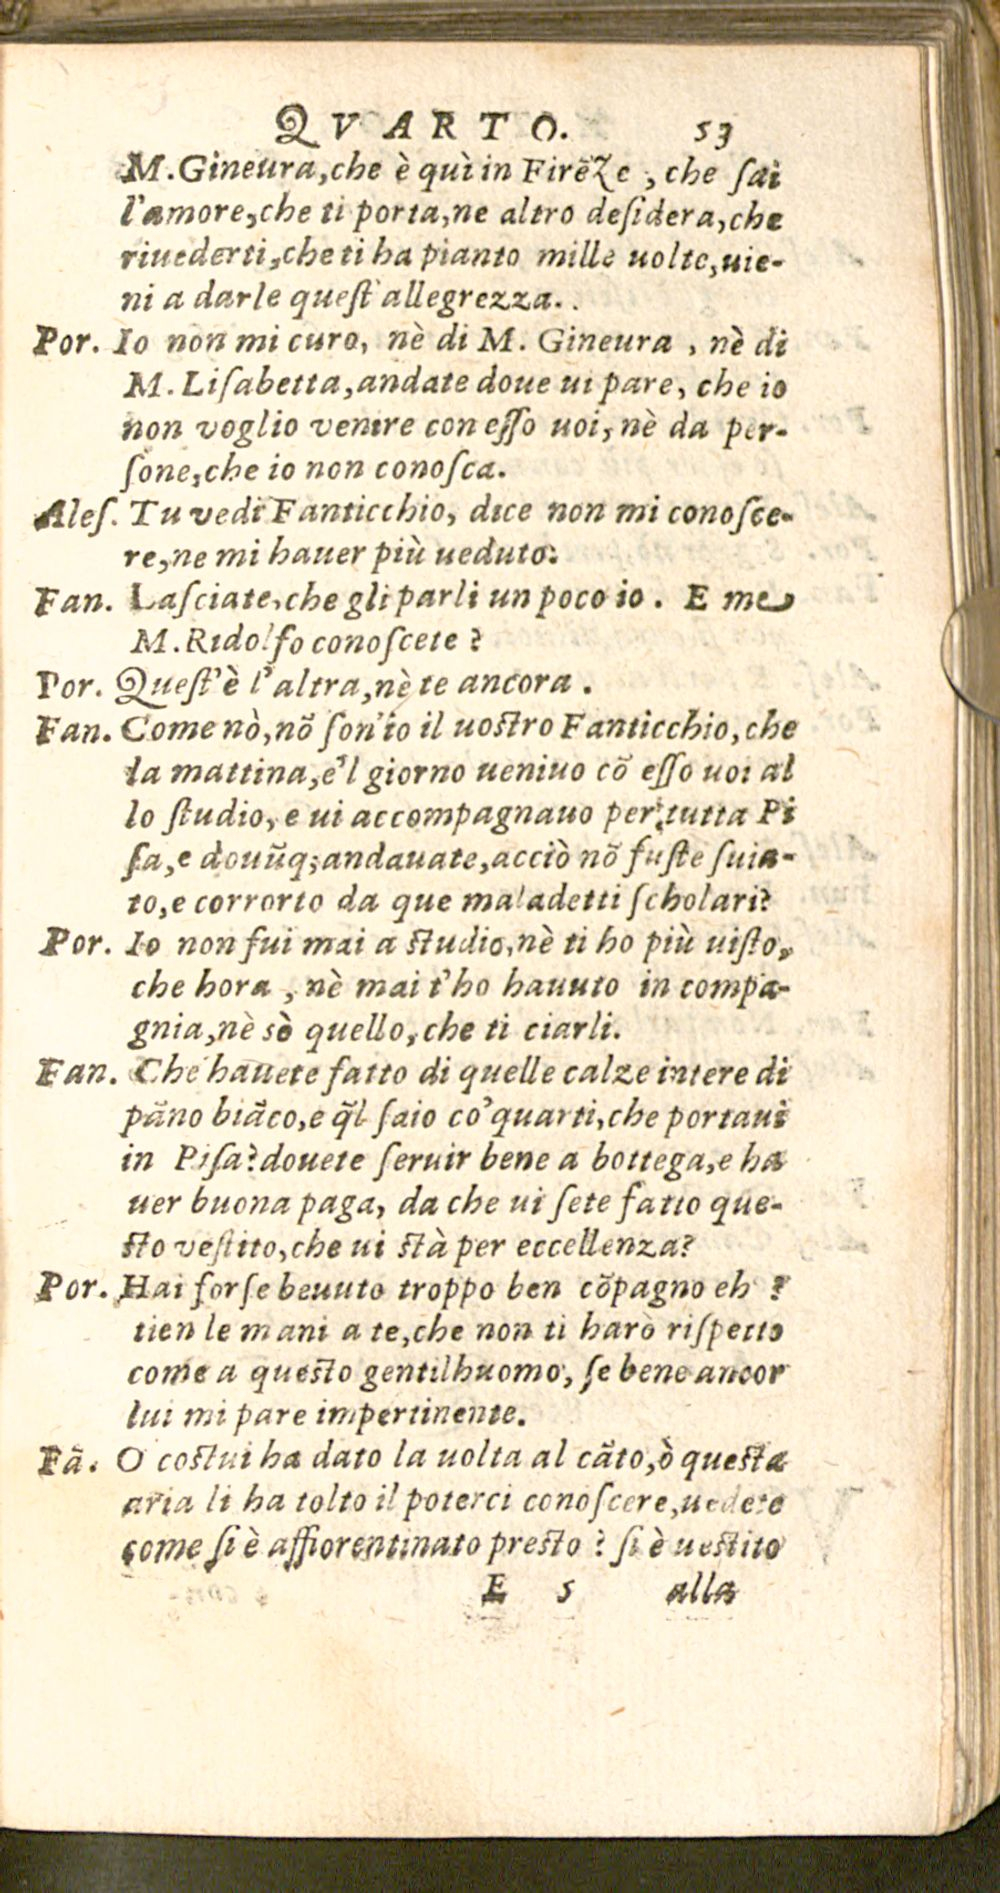 QVARTO. 53
M. Gineura, che è quì in Firẽze, che ſai
l'amore, che ti porta, ne altro deſidera, che
riuederti, che ti ha pianto mille uolte, uie-
ni a darle queſt'allegrezza.
Por. Io non mi curo, nè di M. Gineura, nè di
M. Liſabetta, andate doue ui pare, che io
non voglio venire con eſſo uoi, nè da per-
ſone, che io non conoſca.
Aleſ. Tu vedi Fanticchio, dice non mi conoſce-
re, ne mi hauer più ueduto.
Fan. Laſciate, che gli parli un poco io. E me
M. Ridolfo conoſcete?
Por. Queſt'è l'altra, nè te ancora.
Fan. Come nò, nõ ſon'io il uoſtro Fanticchio, che
la mattina, e'l giorno ueniuo cõ eſſo uoi al
lo ſtudio, e ui accompagnauo per tutta Pi
ſa, e douũq; andauate, acciò nõ fuſte ſuia-
to, e corrorto da que maladetti ſcholari?
Por. Io non fui mai a ſtudio, nè ti ho più uiſto,
che hora, nè mai t'ho hauuto in compa-
gnia, nè sò quello, che ti ciarli.
Fan. Che hauete fatto di quelle calze intere di
pãno biãco, e q̃l ſaio co'quarti, che portaui
in Piſa? douete ſeruir bene a bottega, e ha
uer buona paga, da che ui ſete fatto que-
ſto veſtito, che ui ſtà per eccellenza?
Por. Hai forſe beuuto troppo ben cõpagno eh?
tien le mani a te, che non ti harò riſpetto
come a queſto gentilhuomo, ſe bene ancor
lui mi pare impertinente.
Fã. O coſtui ha dato la uolta al cãto, ò queſta
aria li ha tolto il poterci conoſcere, uedete
come ſi è affiorentinato preſto? ſi è ueſtito
E 5 alla